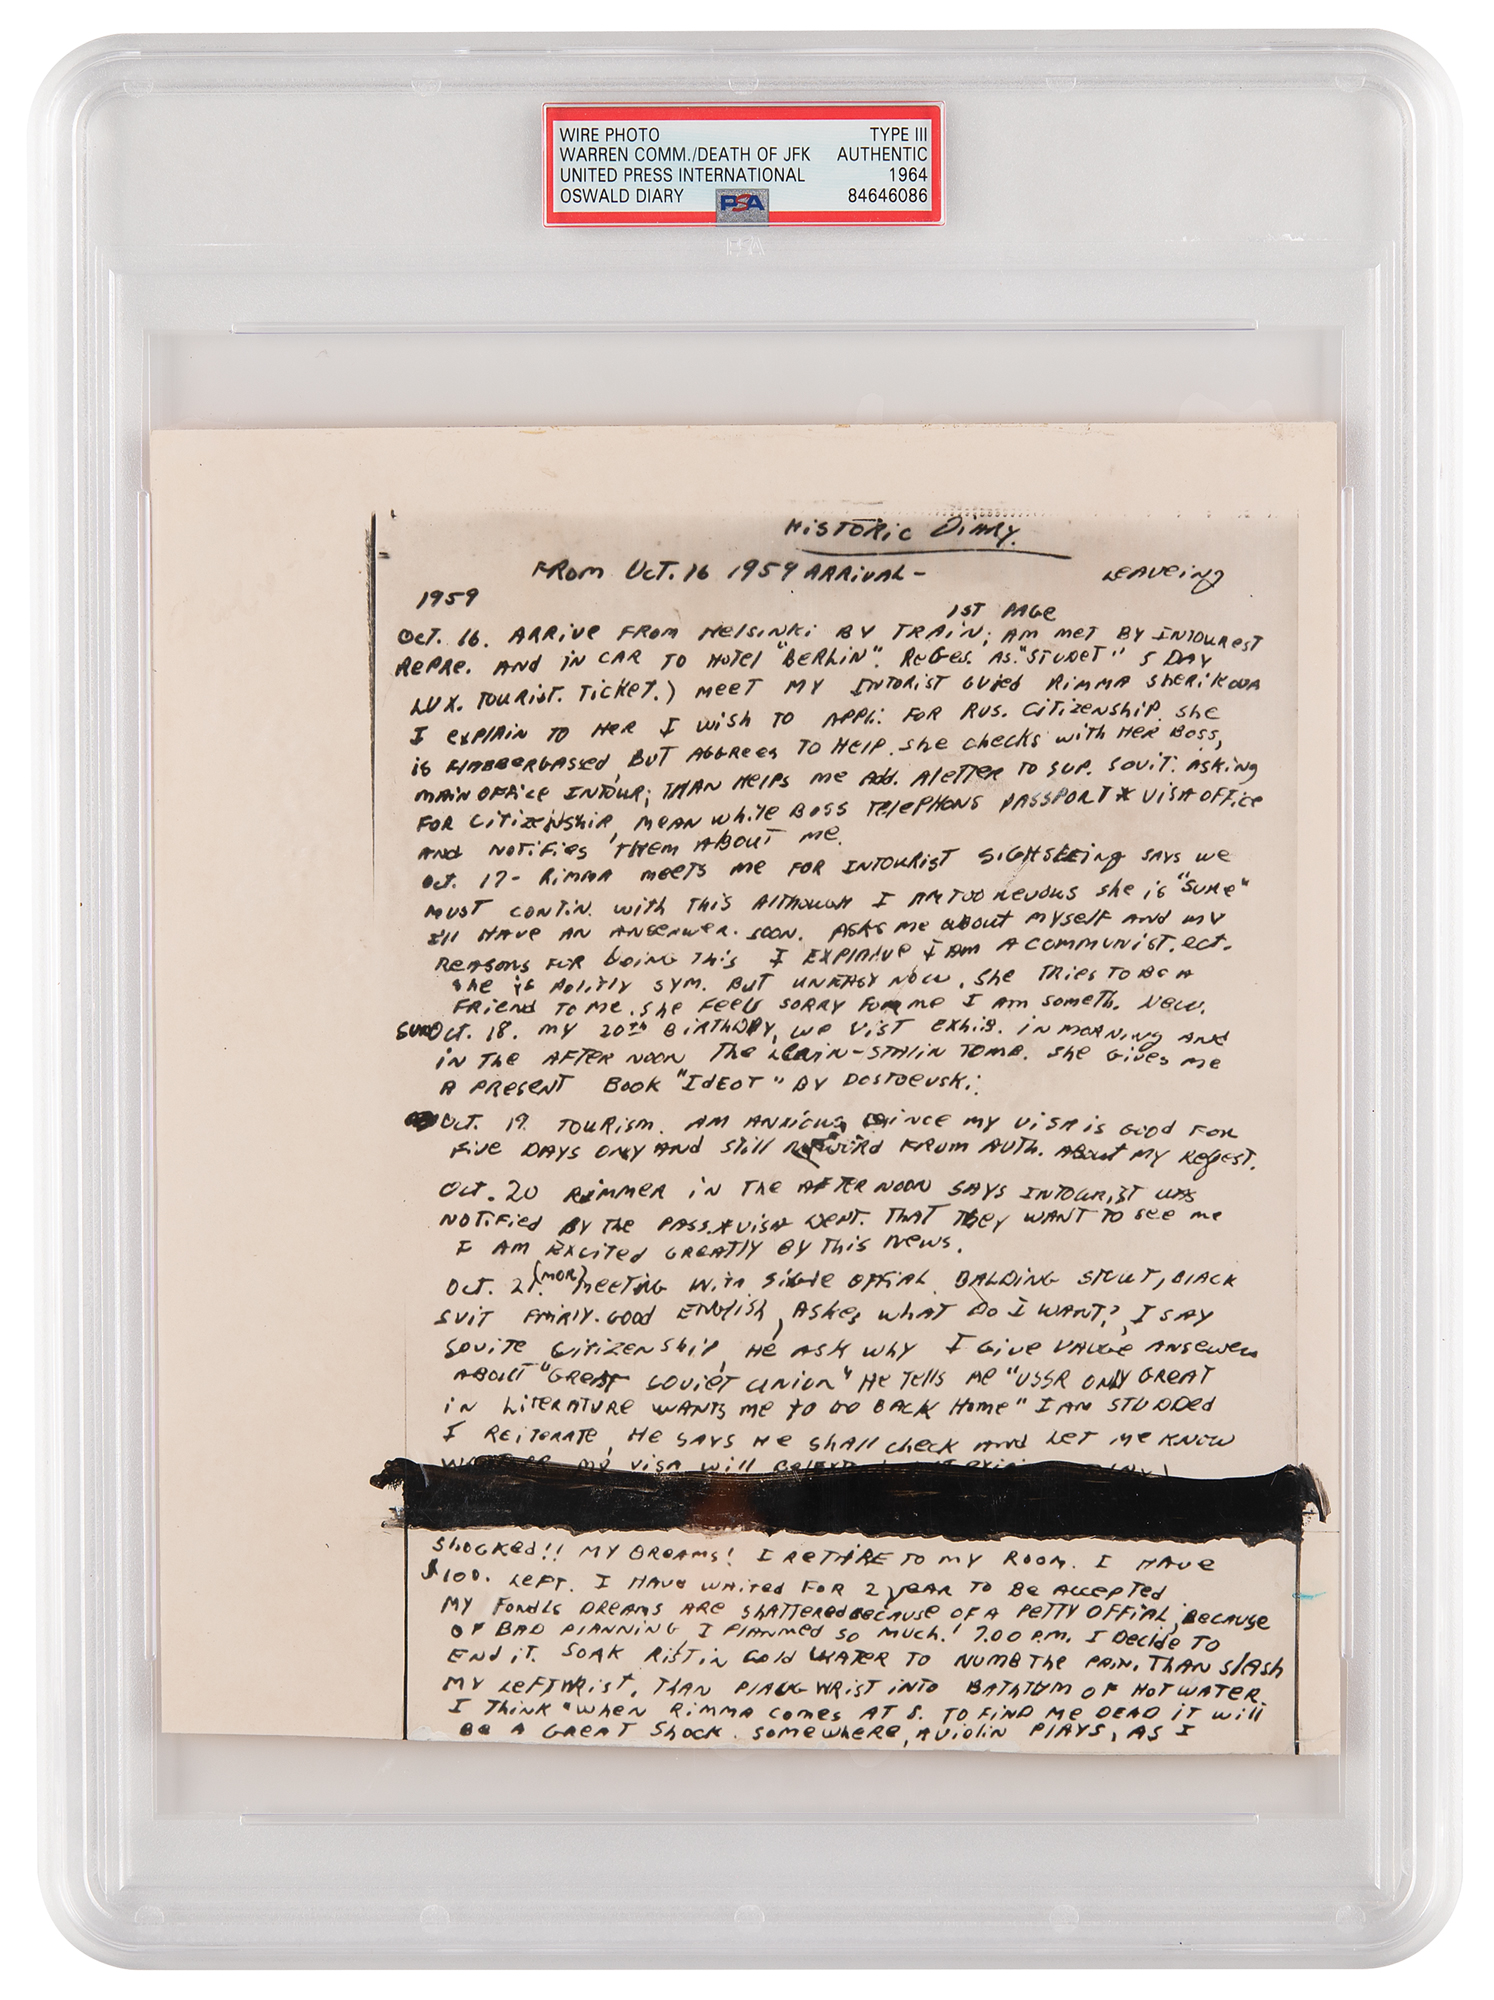 WIRE PHOTO TYPE III
WARREN COMM./DEATH OF JFK AUTHENTIC
UNITED PRESS INTERNATIONAL 1964
OSWALD DIARY PSA 84646086
HISTORIC DIARY.
FROM OCT. 16 1959 ARRIVAL - LEAVEING
1959
1ST PAGE
OCT. 16. ARRIVE FROM HELSINKI BY TRAIN; AM MET BY INTOUREST
REPRE. AND IN CAR TO HOTEL "BERLIN". REGES. AS. "STUDET" 5 DAY
LUX. TOURIST. TICKET.) MEET MY INTORIST GUIED RIMMA SHERIKOVA
I EXPLAIN TO HER I WISH TO APPLI. FOR RUS. CITIZENSHIP. SHE
IS FLABBERGASSED, BUT AGGREES TO HELP. SHE CHECKS WITH HER BOSS,
MAIN OFFICE INTOUR; THAN HELPS ME ADD. A LETTER TO SUP. SOVIT. ASKING
FOR CITIZENSHIP, MEAN WHILE BOSS TELEPHONS PASSPORT & VISA OFFICE
AND NOTIFIES THEM ABOUT ME.
OCT. 17 - RIMMA MEETS ME FOR INTOURIST SIGHSEEING SAYS WE
MUST CONTIN. WITH THIS ALTHOUGH I AM TOO NEVOUS SHE IS "SURE"
I'll HAVE AN ANSERWER. SOON. ASKS ME ABOUT MYSELF AND MY
REASONS FOR DOING THIS I EXPLAINE I AM A COMMUNIST, ECT.
SHE IS POLITLY SYM. BUT UNEASY NOW. SHE TRIES TO BE A
FRIEND TO ME. SHE FEELS SORRY FOR ME I AM SOMETH. NEW.
SUN OCT. 18. MY 20TH BIRTHDAY, WE VIST EXHIB. IN MORNING AND
IN THE AFTER NOON THE LENIN-STALIN TOMB. SHE GIVES ME
A PRESENT BOOK "IDEOT" BY DOSTOEVSKI.
OCT. 19. TOURISM. AM ANXIOUS SINCE MY VISA IS GOOD FOR
FIVE DAYS ONLY AND STILL NO WORD FROM AUTH. ABOUT MY REQEST.
OCT. 20 RIMMER IN THE AFTER NOON SAYS INTOURIST WAS
NOTIFIED BY THE PASS. & VISA DEPT. THAT THEY WANT TO SEE ME
I AM EXCITED GREATLY BY THIS NEWS.
OCT. 21. (MOR) MEETING WITH SINGLE OFFIAL. BALDING STOUT, BLACK
SUIT FAIRLY. GOOD ENGLISH, ASKES WHAT DO I WANT?, I SAY
SOVITE CITIZENSHIP, HE ASK WHY I GIVE VAUGE ANSEWERS
ABOUT "GREAT SOVIET UNION" HE TELLS ME "USSR ONLY GREAT
IN LITERATURE WANTS ME TO GO BACK HOME" I AM STUDDED
I REITERATE, HE SAYS HE SHALL CHECK AND LET ME KNOW
MY VISA WILL
SHOCKED!! MY DREAMS! I RETIRE TO MY ROOM. I HAVE
$100. LEFT. I HAVE WAITED FOR 2 YEAR TO BE ACCEPTED
MY FONDES DREAMS ARE SHATTERED BECAUSE OF A PETTY OFFIAL, BECAUSE
OF BAD PLANNING I PLANNED SO MUCH! 7.00 P.M. I DECIDE TO
END IT. SOAK RIST IN COLD WATER TO NUMB THE PAIN, THAN SLASH
MY LEFT WRIST, THAN PLAUG WRIST INTO BATHTUM OF HOT WATER.
I THINK "WHEN RIMMA COMES AT 8. TO FIND ME DEAD IT WILL
BE A GREAT SHOCK. SOMEWHERE, A VIOLIN PLAYS, AS I